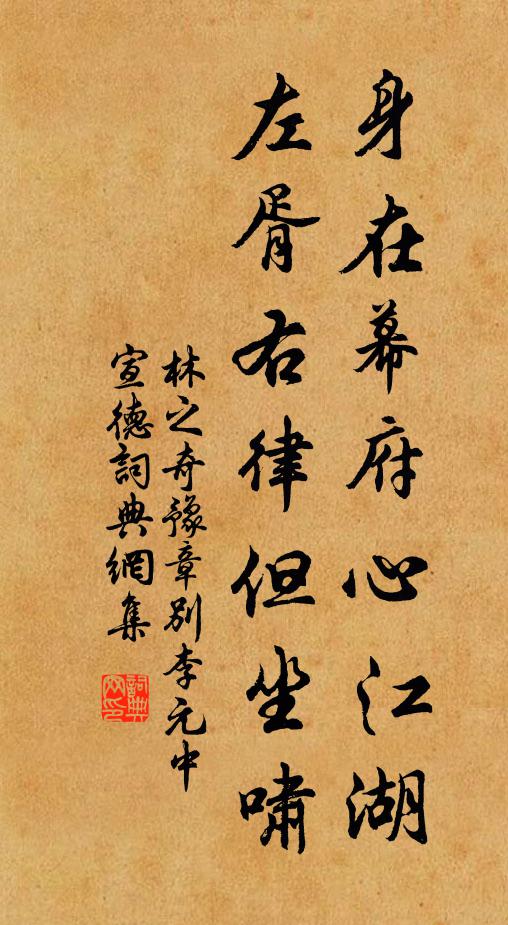 身在幕府心江湖
左胥右律但坐啸
林之奇豫章別李元中
宣德詞典網集
詞典
网印